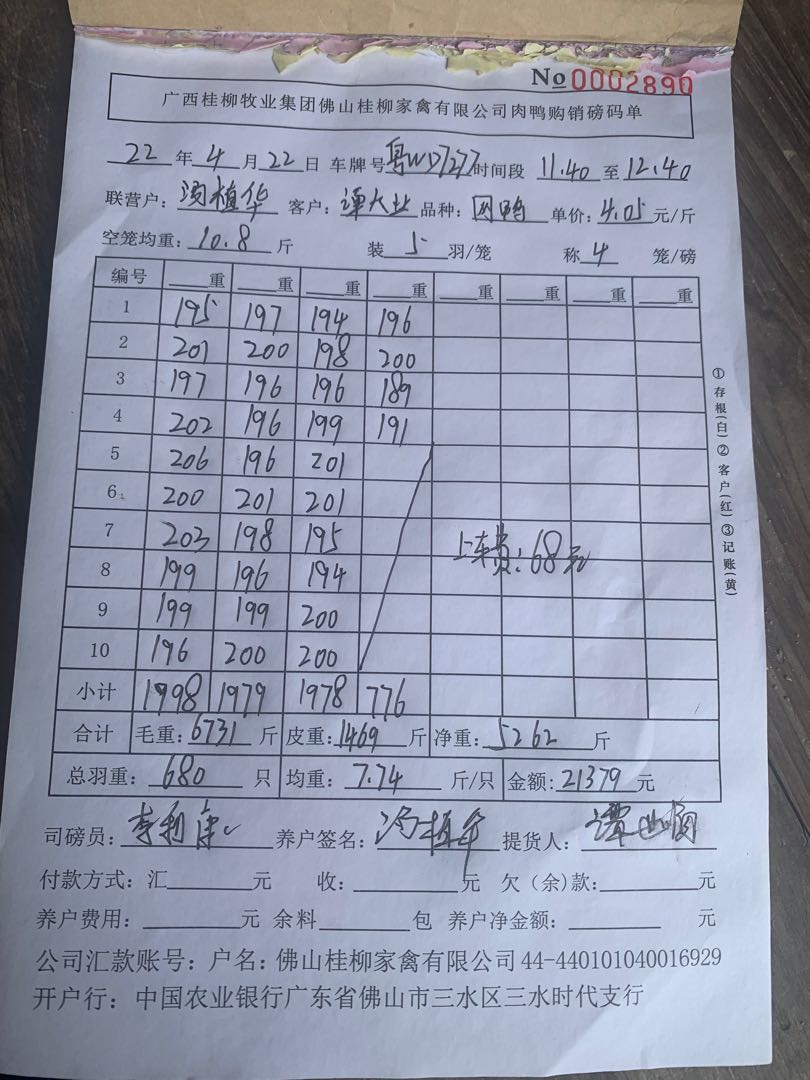 No 0002890
广西桂柳牧业集团佛山桂柳家禽有限公司肉鸭购销磅码单
22 年 4 月 22 日 车牌号 粤WD7277 时间段 11.40 至 12.40
联营户: 冯植华 客户: 谭大业 品种: 肉鸭 单价: 4.05 元/斤
空笼均重: 10.8 斤 装 5 羽/笼 称 4 笼/磅
编号 重 重 重 重 重 重 重 重
1 195 197 194 196
2 201 200 198 200
3 197 196 196 189
4 202 196 199 191
5 206 196 201
6 200 201 201
7 203 198 195
上车费: 68元
8 199 196 194
9 199 199 200
10 196 200 200
小计 1998 1979 1978 776
合计 毛重: 6731 斤 皮重: 1469 斤 净重: 5262 斤
总羽重: 680 只 均重: 7.74 斤/只 金额: 21379 元
司磅员: 李利 养户签名: 冯植华 提货人: 谭
付款方式: 汇 元 收: 元 欠(余)款: 元
养户费用: 元 余料 包 养户净金额: 元
公司汇款账号: 户名: 佛山桂柳家禽有限公司 44-440101040016929
开户行: 中国农业银行广东省佛山市三水区三水时代支行
①存根(白)②客户(红)③记账(黄)